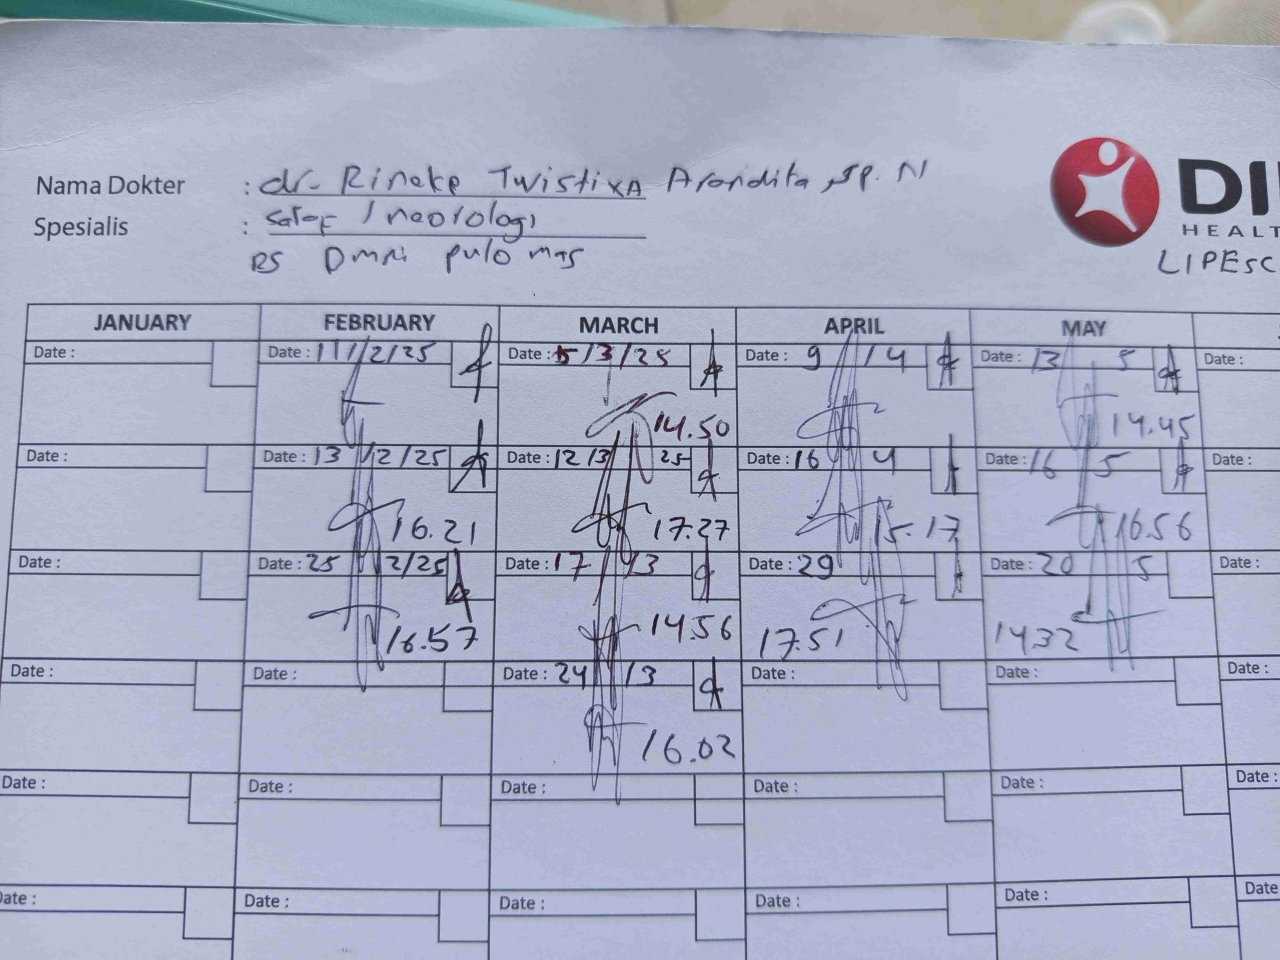 Nama Dokter : dr. Rineke Twistixa Arandita, Sp. N
Spesialis : Saraf / neorologi
RS Omni pulo mas
DI
HEALT
LIPESC
JANUARY FEBRUARY MARCH APRIL MAY
Date : Date : 11/2/25 Date : 5/3/25 Date : 9/4 Date : 13 5 Date :
14.50 14.45
Date : Date : 13/2/25 Date : 12/3 25 Date : 16 4 Date : 16 5 Date :
16.21 17.27 15.17 16.56
Date : Date : 25 2/25 Date : 17/3 Date : 29 Date : 20 5 Date :
16.57 14.56 17.51 1432
Date : Date : Date : 24/3 Date : Date : Date :
16.02
Date : Date : Date : Date : Date : Date :
Date : Date : Date : Date : Date : Date